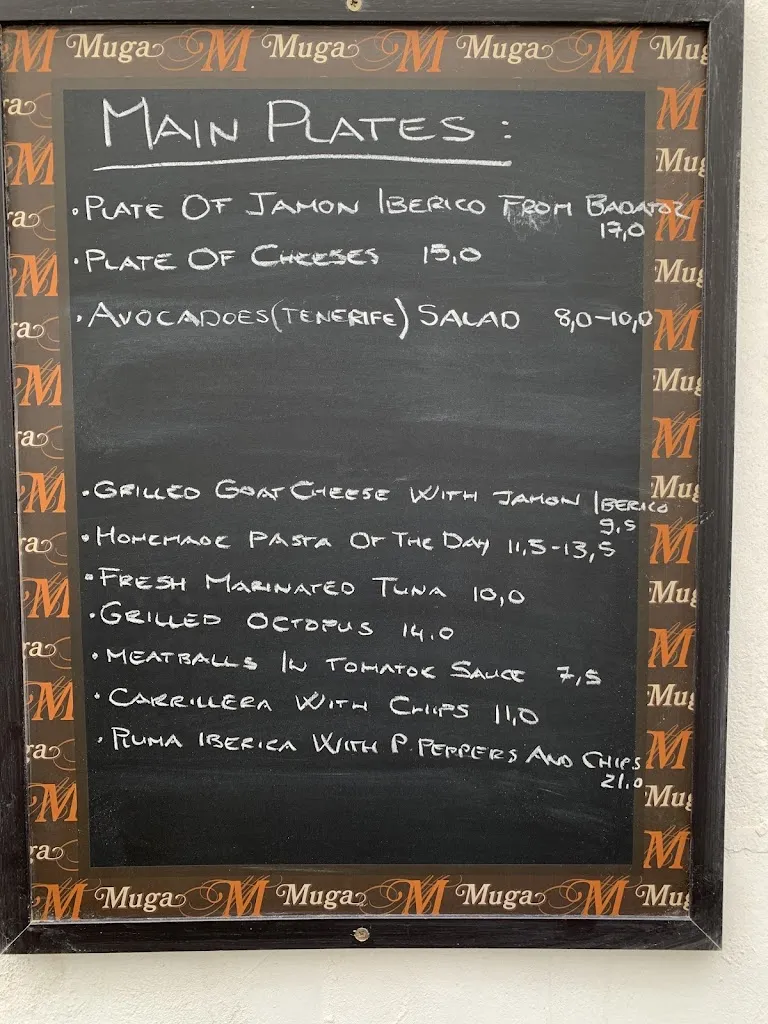 Muga M Muga M Muga M Mug
MAIN PLATES:
• PLATE OF JAMON IBERICO FROM BADATOZ
17,0
• PLATE OF CHEESES 15,0
• AVOCADOES (TENERIFE) SALAD 8,0-10,0
• GRILLED GOAT CHEESE WITH JAMON IBERICO
9,5
• HOMEMADE PASTA OF THE DAY 11,5-13,5
• FRESH MARINATED TUNA 10,0
• GRILLED OCTOPUS 14.0
• MEATBALLS IN TOMATOE SAUCE 7,5
• CARRILLERA WITH CHIPS 11,0
• PLUMA IBERICA WITH P. PEPPERS AND CHIPS
21.0
M Muga M Muga M Muga M Mug